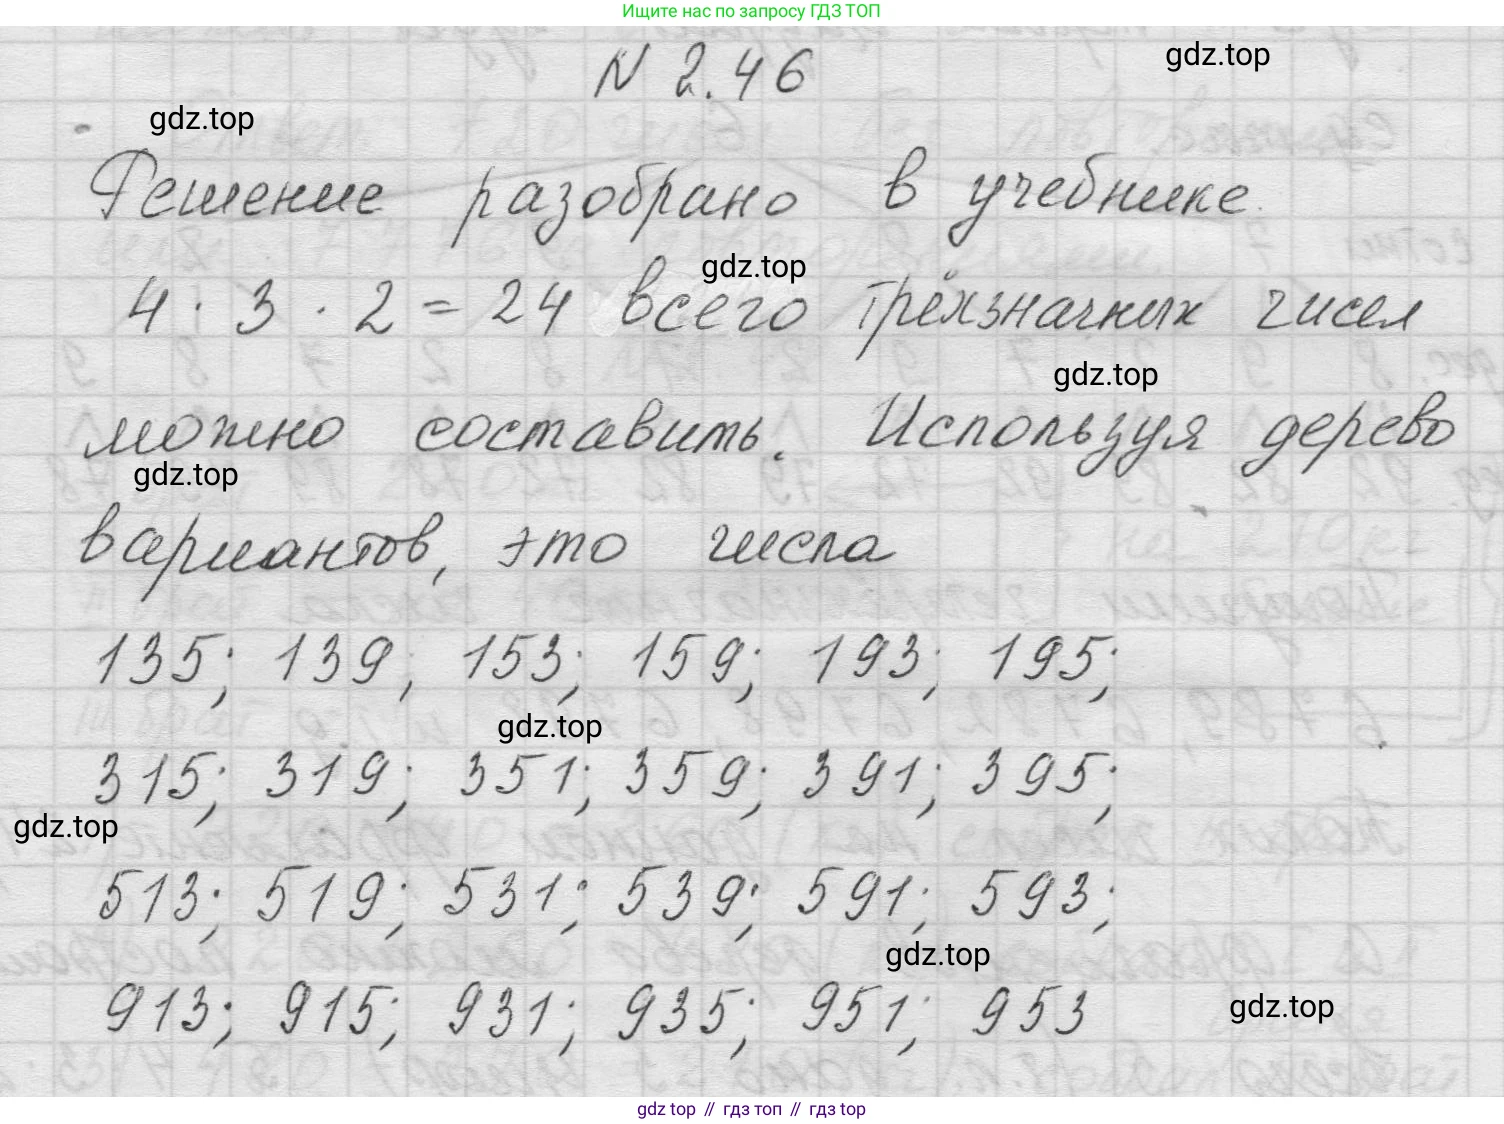 Ищите нас по запросу ГДЗ ТОП
N 2.46
gdz.top
gdz.top
Решение разобрано в учебнике.
gdz.top
4 · 3 · 2 = 24 всего трёхзначных чисел
gdz.top
можно составить. Используя дерево
gdz.top
вариантов, это числа
135; 139; 153; 159; 193; 195;
gdz.top
315; 319; 351; 359; 391; 395;
gdz.top
513; 519; 531; 539; 591; 593;
gdz.top
913; 915; 931; 935; 951; 953
gdz.top
gdz top // гдз топ // гдз top